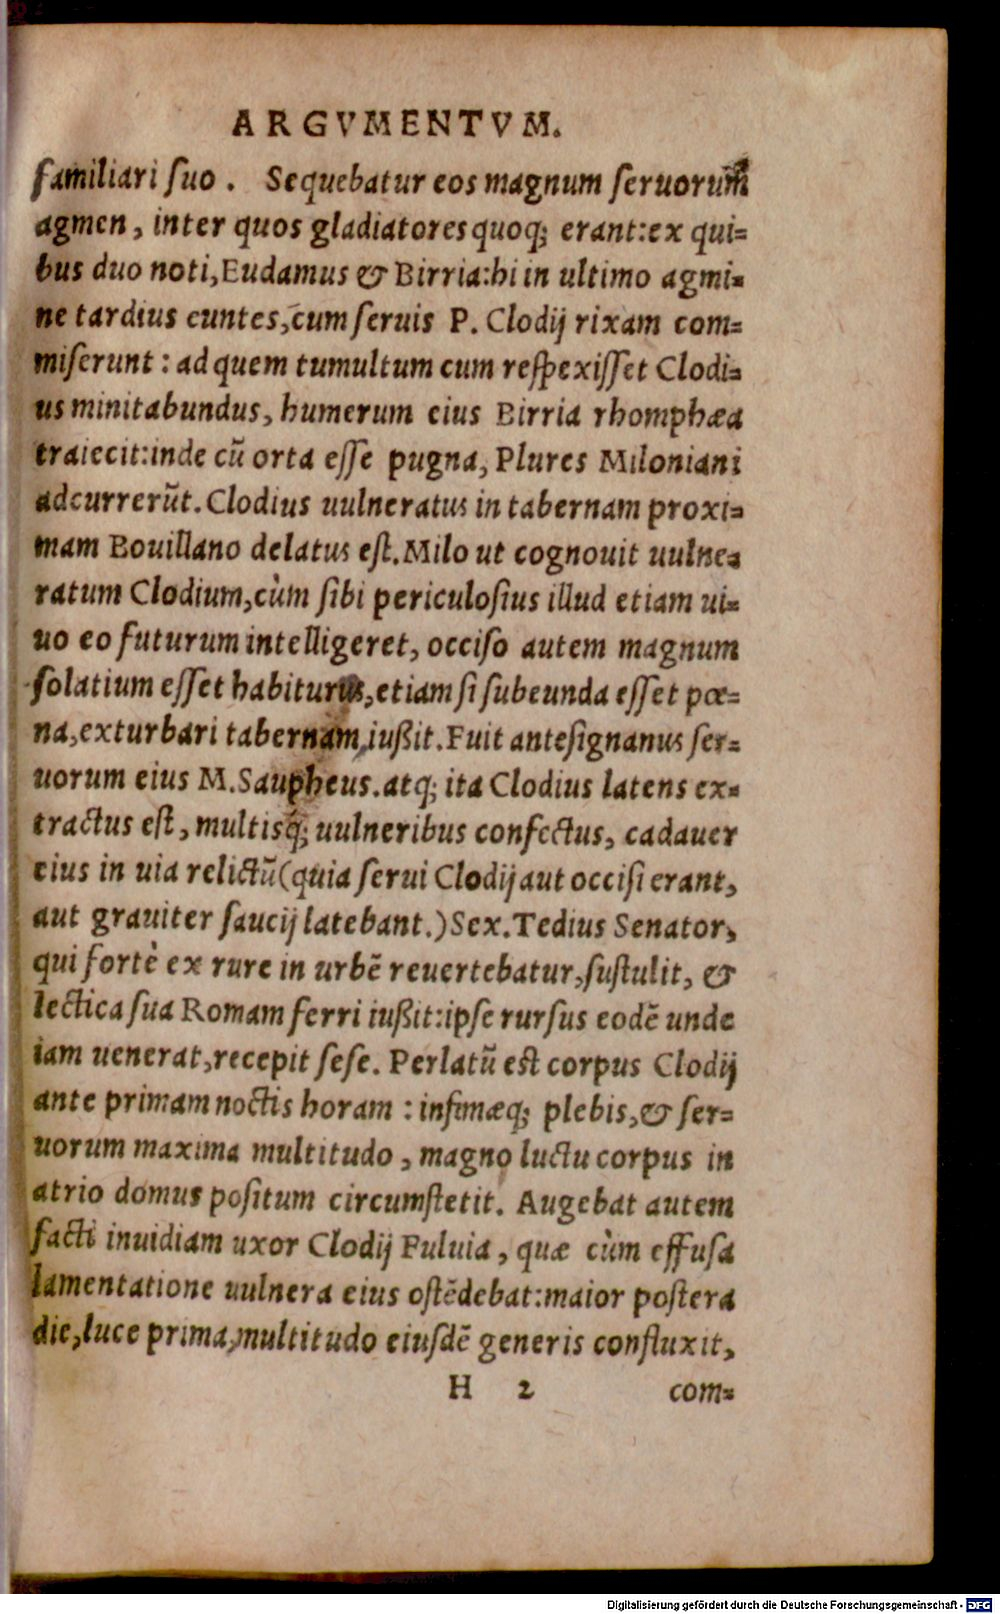 ARGVMENTVM.
familiari ſuo . Sequebatur eos magnum ſeruorum
agmen, inter quos gladiatores quoq; erant:ex qui=
bus duo noti,Eudamus & Birria:hi in ultimo agmi=
ne tardius euntes, cum ſeruis P. Clodij rixam com=
miſerunt : ad quem tumultum cum reſpexiſſet Clodi=
us minitabundus, humerum eius Birria rhomphæa
traiecit:inde cũ orta eſſe pugna, Plures Miloniani
adcurrerũt. Clodius uulneratus in tabernam proxi=
mam Bouillano delatus eſt. Milo ut cognouit uulne=
ratum Clodium,cùm ſibi periculoſius illud etiam ui=
uo eo futurum intelligeret, occiſo autem magnum
ſolatium eſſet habiturus,etiam ſi ſubeunda eſſet pœ=
na,exturbari tabernam,iußit.Fuit anteſignanus ſer=
uorum eius M.Saupheus.atq; ita Clodius latens ex=
tractus eſt, multisq; uulneribus confectus, cadauer
eius in uia relictũ(quia ſerui Clodij aut occiſi erant,
aut grauiter ſaucij latebant.)Sex.Tedius Senator,
qui fortè ex rure in urbẽ reuertebatur,ſuſtulit, &
lectica ſua Romam ferri iußit:ipſe rurſus eodẽ unde
iam uenerat,recepit ſeſe. Perlatũ eſt corpus Clodij
ante primam noctis horam : infimæq; plebis,& ſer=
uorum maxima multitudo , magno luctu corpus in
atrio domus poſitum circumſtetit. Augebat autem
facti inuidiam uxor Clodij Fuluia , quæ cùm effuſa
lamentatione uulnera eius oſtẽdebat:maior poſtera
die,luce prima,multitudo eiuſdẽ generis confluxit,
H 2 com=
Digitalisierung gefördert durch die Deutsche Forschungsgemeinschaft - DFG